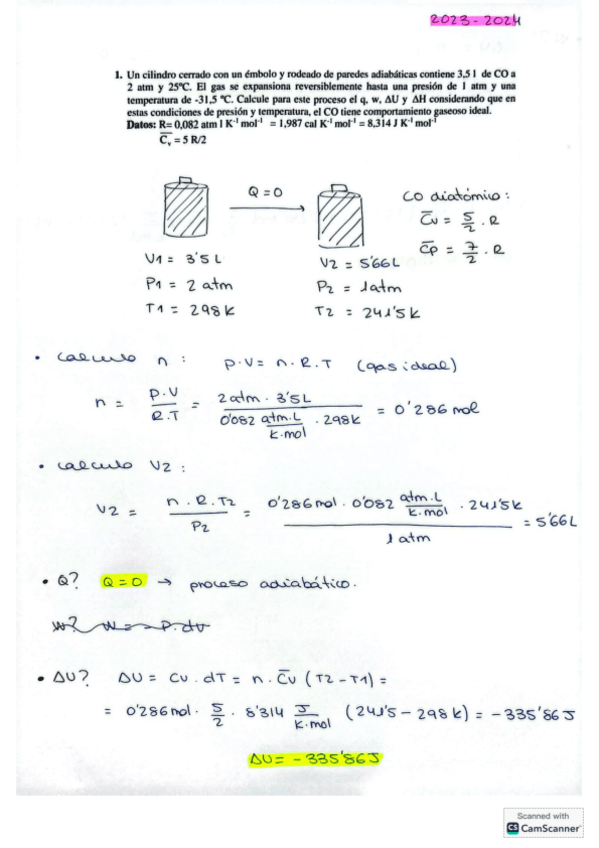 2023-2024
1. Un cilindro cerrado con un émbolo y rodeado de paredes adiabáticas contiene 3,5 l de CO a
2 atm y 25ºC. El gas se expansiona reversiblemente hasta una presión de 1 atm y una
temperatura de -31,5 ºC. Calcule para este proceso el q, w, ΔU y ΔH considerando que en
estas condiciones de presión y temperatura, el CO tiene comportamiento gaseoso ideal.
Datos: R= 0,082 atm l K⁻¹ mol⁻¹ = 1,987 cal K⁻¹ mol⁻¹ = 8,314 J K⁻¹ mol⁻¹
C̅v = 5 R/2
Q=0
CO diatómico:
C̅v = 5/2 · R
C̅p = 7/2 · R
V1 = 3'5 L
P1 = 2 atm
T1 = 298 K
V2 = 5'66 L
P2 = 1 atm
T2 = 241'5 K
• Calculo n: P·V = n·R·T (gas ideal)
n = P·V / R·T = 2 atm · 3'5 L / 0'082 atm·L/K·mol · 298 K = 0'286 mol
• Calculo V2:
V2 = n·R·T2 / P2 = 0'286 mol · 0'082 atm·L/K·mol · 241'5 K / 1 atm = 5'66 L
• Q? Q=0 → proceso adiabático.
w? W = -P·dv
• ΔU? ΔU = Cv·dT = n·C̅v (T2-T1) =
= 0'286 mol · 5/2 · 8'314 J/K·mol (241'5 - 298 K) = -335'86 J
ΔU = -335'86 J
Scanned with
CS CamScanner